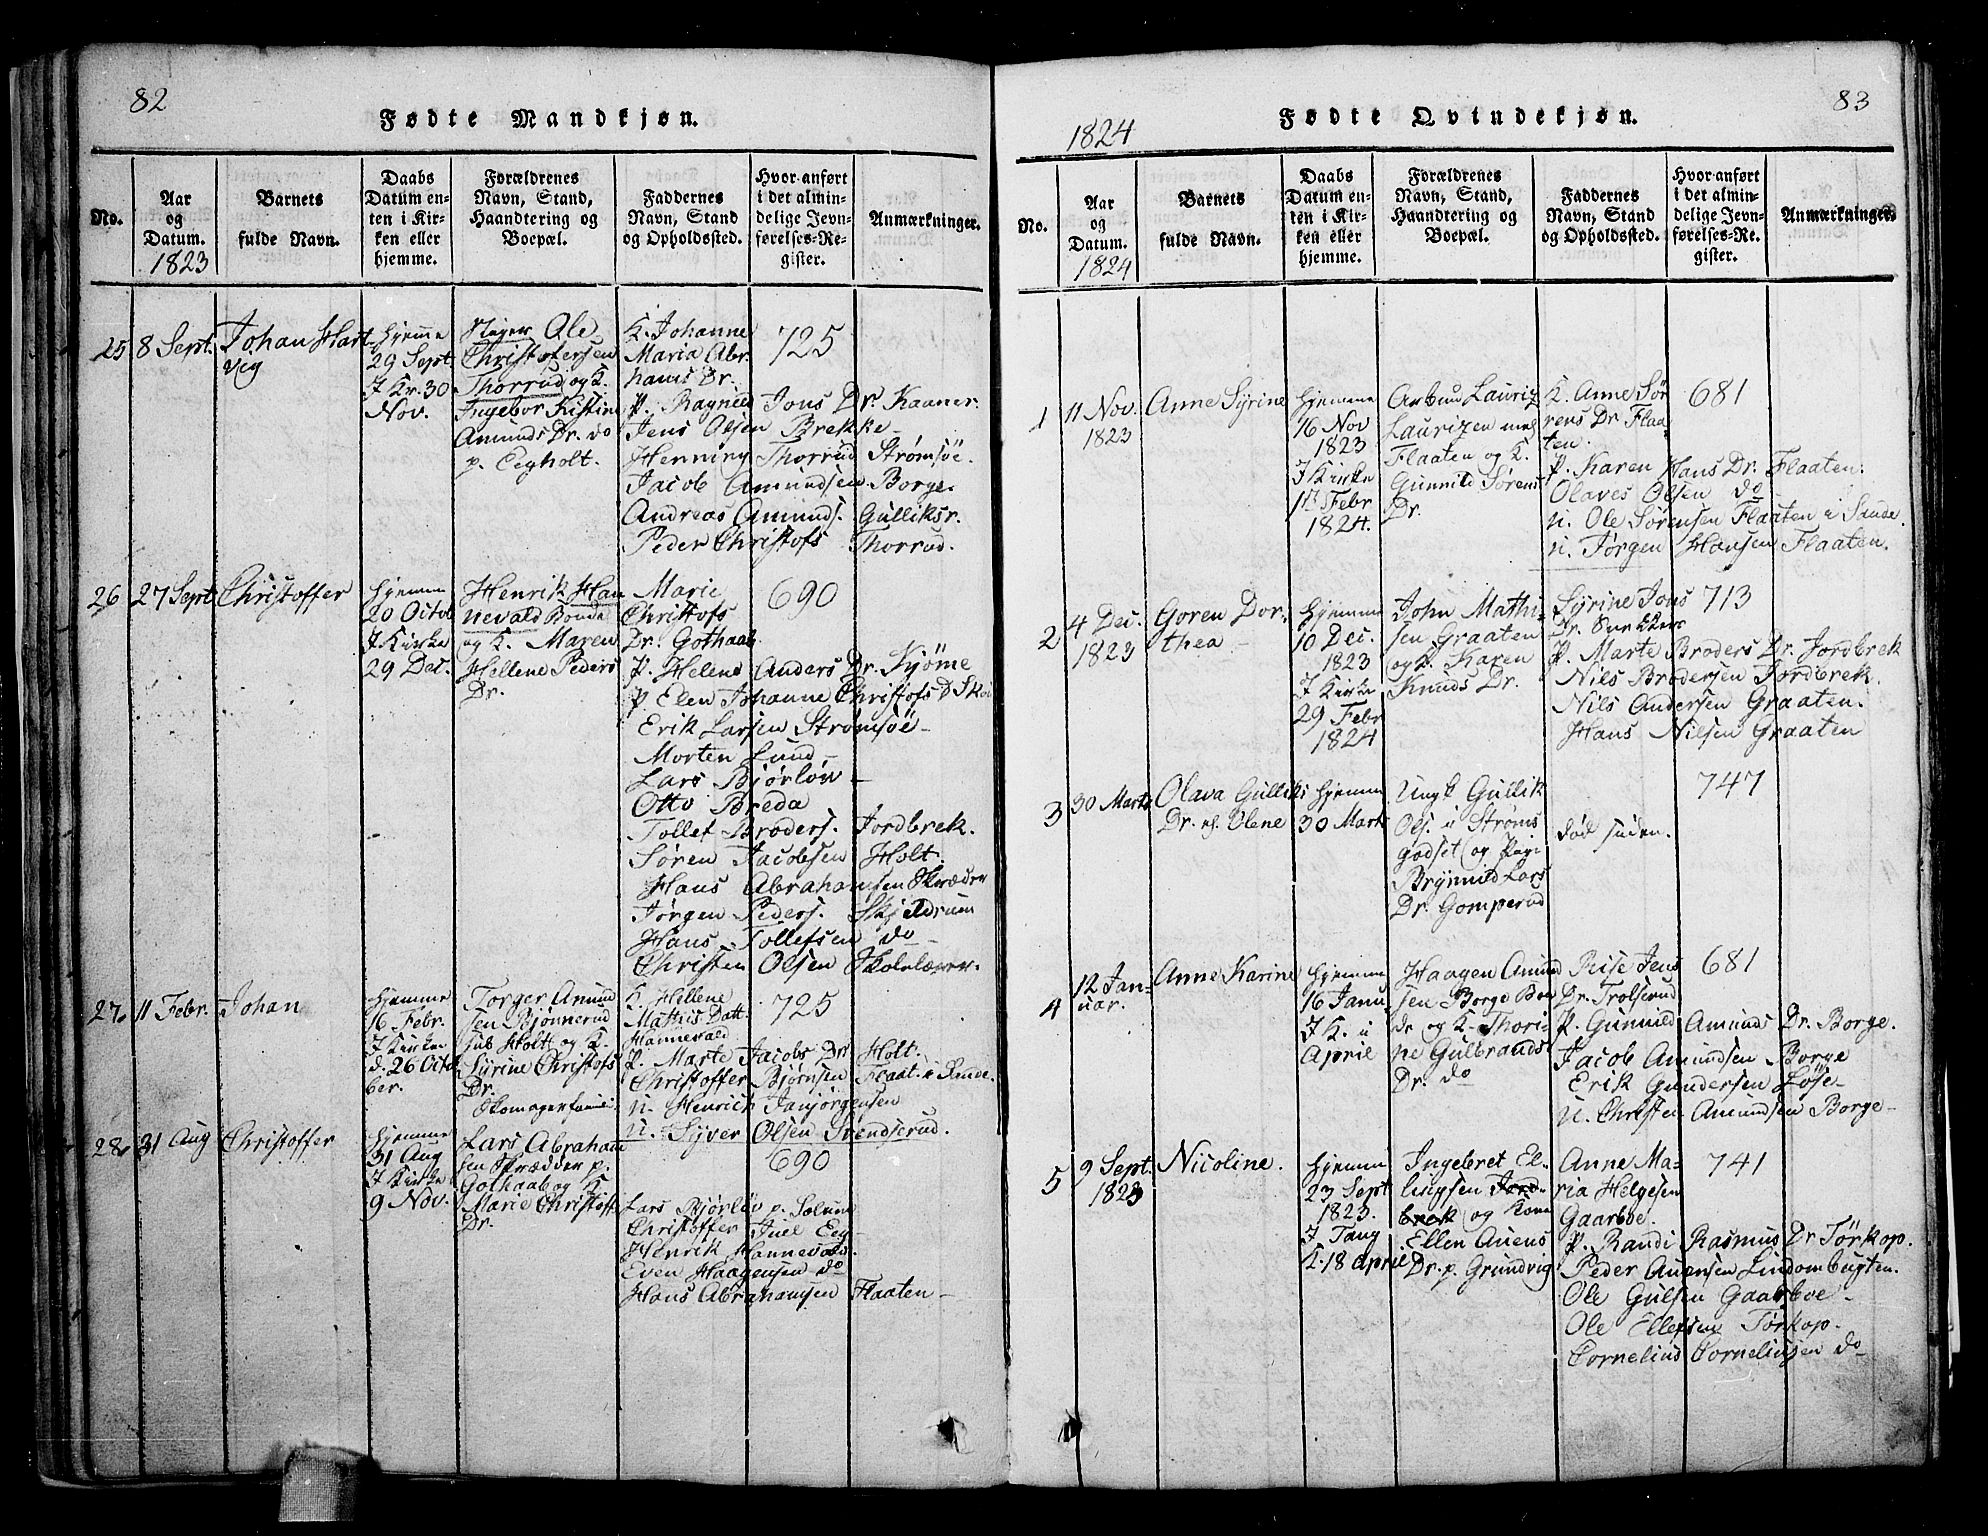 82
Fødte Mandkjøn.
No.
Aar
og
Datum.
1823
Barnets
fulde Navn.
Daabs
Datum en-
ten i Kir-
ken eller
hjemme.
Forældrenes
Navn, Stand,
Haandtering og
Boepæl.
Faddernes
Navn, Stand
og Opholdssted.
Hvor anført
i det almin-
delige Jevn-
førelses-Re-
gister.
Anmærkninger.
25
8 Sept.
Johan Hart-
vig
Hjemme
29 Sept.
I Kr. 30
Nov.
Ole
Christofersen
Thorrud og K.
Ingebor Kistine
Amunds Dr. do
p. Eegholt.
K. Johanne
Maria Abr.
hams Dr.
P. Ragnild Jons Dr. Kaaner.
Jens Olsen Brekke
Henning Thorrud Strømsöe.
Jacob Amundsen Borge.
Andreas Amunds. Gulliksr.
Peder Christofs Thorrud.
725
26
27 Sept.
Christoffer
Hjemme
20 Octob
I Kirke
29 Dec.
Henrik Han
nevald Bonde
og K. Maren
Hellene Peders
Dr.
Marie
Christofs
Dr. Gothaab.
P. Helene Anders Dr. Kjöme
P. Elen Johanne Christofs D
Erik Larsen Strømsöe-
Morten Lund-
Lars Bjørløv-
Otto Breda
Tollef Broders. Jordbrek.
Søren Jacobsen Holt.
Hans Abrahamsen Skræder
Jørgen Peders. Skjeldrum
Hans Tollefsen do-
Christen Olsen Skolelærer.
690
27.
11 Febr.
Johan
Hjemme
16 Febr.
I Kirke
d. 26 Octo
ber.
Torger Amund
sen Bjønnerud
Holt og K.
Syrine Christofs
Dr.
K. Hellene
Mathis Datt.
Hannevald
P. Marte Jacobs Dr. Holt.
Christoffer Bjørnsen Flaat. i Sande.
U. Henrich Janjørgensen
U. Syver Olsen Svendserud.
725
28.
31 Aug
Christoffer
Hjemme
31 Aug
I Kirke
9 Nov.
Lars Abraham
sen Skrædder p.
Gothaab og K.
Marie Christoff.
Dr.
Lars Bjørløv p. Solum
Christoffer Juel Eeg
Henrik Hannevold.
Even Haagensen do
Hans Abrahamsen Flaaten-
690
83
Fødte Qvindekjøn.
1824
No.
Aar
og
Datum.
1824
Barnets
fulde Navn.
Daabs
Datum en-
ten i Kir-
ken eller
hjemme.
Forældrenes
Navn, Stand,
Haandtering og
Boepæl.
Faddernes
Navn, Stand
og Opholdssted.
Hvor anført
i det almin-
delige Jevn-
førelses-Re-
gister.
Anmærkninger.
1
11 Nov.
1823
Anne Syrine
Hjemme
16 Nov
1823
I Kirke
Febr
1824.
Lauriz
Laurizen
Flaaten og K.
Gunnild Sørens
Dr.
K. Anne Sø-
rens Dr. Flaa-
ten.
P. Karen Hans Dr. Flaaten.
Olaves Olsen do-
U. Ole Sørensen Flaaten i Sande.
U. Jørgen Hansen Flaaten.
681
2
4 Dec.
1823
Goren Dor-
thea-
Hjemme
10 Dec.
1823
I Kirke
29 Febr
1824
John Mathi-
sen Graaten
og K. Karen
Knuds Dr.
Syrine Jons
Dr.
P. Marte Broders Dr. Jordbrek
Nils Brodersen Jordbrek.
Nils Andersen Graaten.
Hans Nilsen Graaten
713
3
30 Marts
Olava Gulliks
Dr. Olene
Hjemme
30 Marts
Ungk. Gullik
Ols. i Strøms
godset og Pigi
Brynnild Lars
Dr. Gomperud
død siden.
747
4
12 Jan-
uar.
Anne Karine
Hjemme
16 Janu
I K. i
April
Haagen Amund
sen Borge Bon
de og K. Thori-
ne Gulbrands
Dr. do
Jens
Dr. Trolserud
P. Gunnild Amunds Dr. Borge.
Jacob Amundsen Borge
Erik Gundersen Løse-
U. Christen Amundsen Borge-
681
5
9 Sept.
1823
Nicoline.
Hjemme
23 Sept
1823.
I Tang
K. 18 April
Ingebret El-
lingsen Jord-
brek og Kone
Ellen Auens
Dr. p. Grundvig
Anne Ma-
ria Helgesen
Gaarboe.
P. Randi Rasmus Dr Tørkop.
Peder Auensen Lindombugten.
Ole Gulsen Gaarboe-
Ole Ellefsen Tørkop.
Cornelius Corneliusen do
741